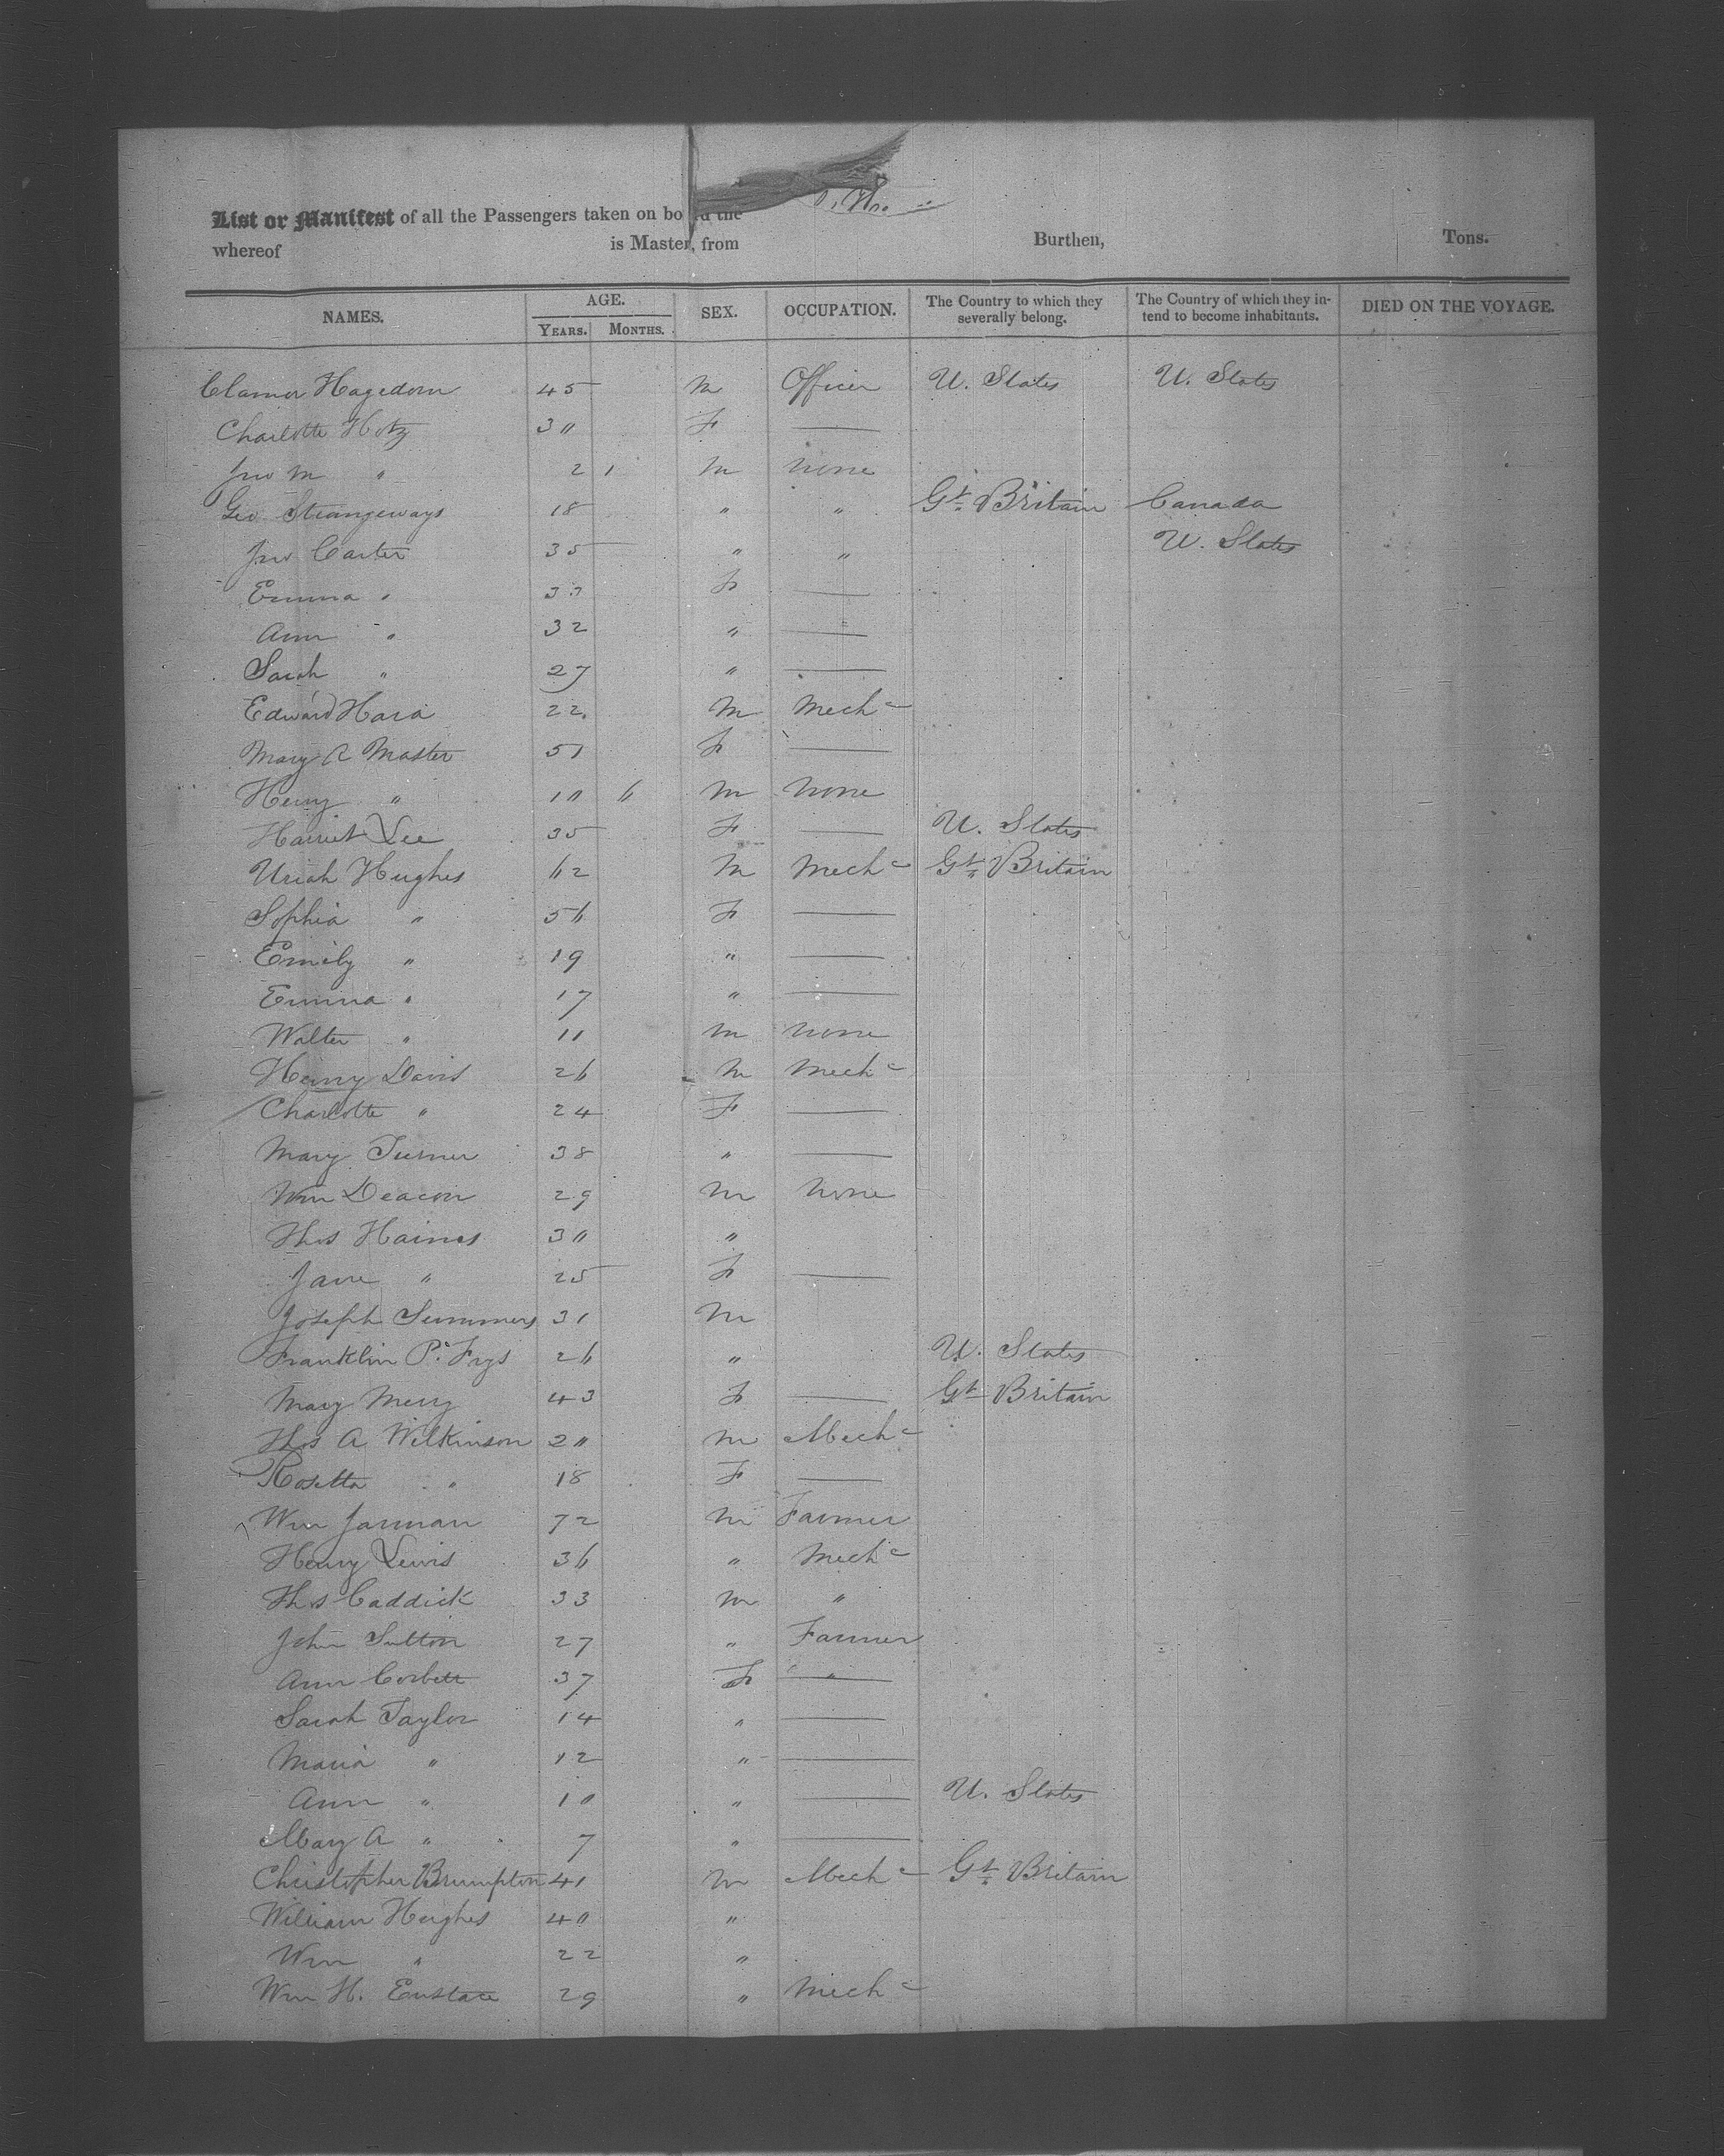 List or Manifest of all the Passengers taken on board the
whereof is Master, from Burthen, Tons.
NAMES. AGE. YEARS. MONTHS. SEX. OCCUPATION. The Country to which they severally belong. The Country of which they intend to become inhabitants. DIED ON THE VOYAGE.
Clamor Hagedorn 45 M Officer U. States U. States
Charlotte Hotz 30 F —
Jno M " 2 1 M None
Geo Strangeways 18 " " Gt. Britain Canada
Jno Carter 35 " " U. States
Emma " 33 F —
Ann " 32 " —
Sarah " 27 " —
Edward Hara 22 M Mechc
Mary A Master 51 F —
Henry " 10 6 M None
Harriet Lee 35 F — U. States
Uriah Hughes 62 M Mechc Gt. Britain
Sophia " 56 F —
Emily " 19 " —
Emma " 17 " —
Walter " 11 M None
Henry Davis 26 M Mechc
Charlotte " 24 F —
Mary Turner 38 " —
Wm Deacon 29 M None
Thos Haines 30 "
Jane " 25 F —
Joseph Summers 31 M
Franklin P. Frys 26 " U. States
Mary Merry 43 F — Gt Britain
Thos A Wilkinson 20 M Mechc
Rosetta " 18 F —
Wm Jarman 72 M Farmer
Henry Lewis 36 " Mechc
Thos Caddick 33 M "
John Sutton 27 " Farmer
Ann Corbett 37 F —
Sarah Taylor 14 " —
Maria " 12 " —
Ann " 10 " — U. States
Mary A " 7 " —
Christopher Brumpton 41 M Mechc Gt. Britain
William Hughes 40 "
Wm " 22 "
Wm H. Eustace 29 " Mechc